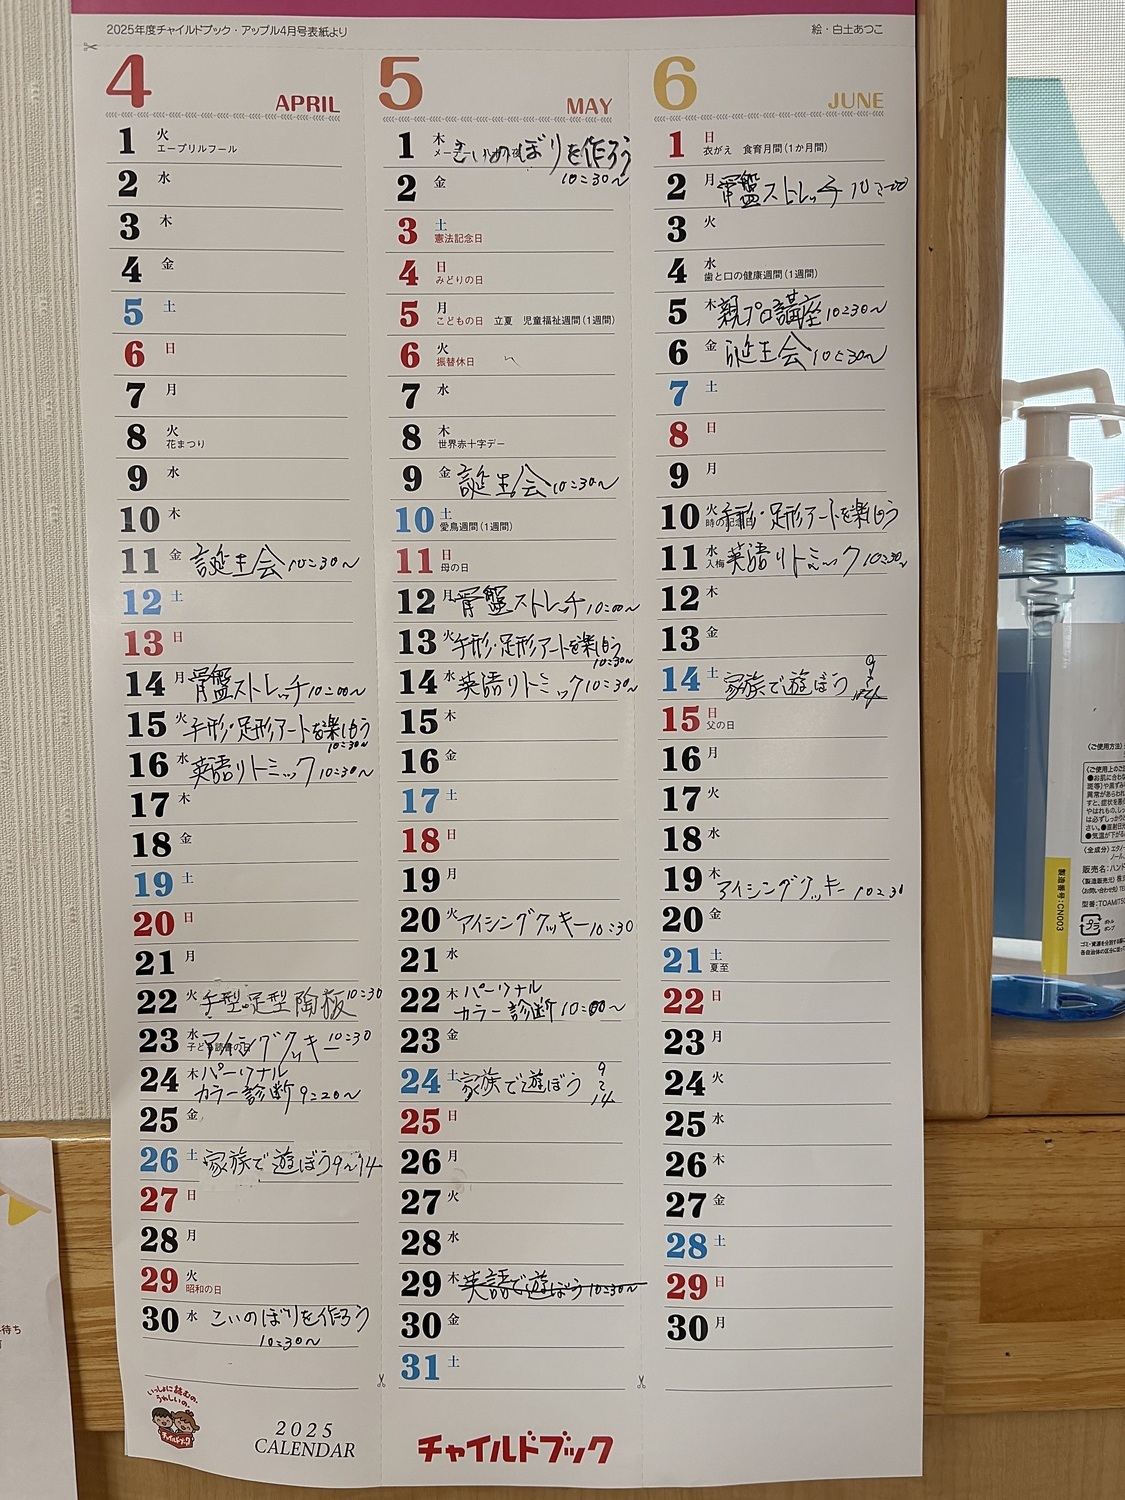 2025年度チャイルドブック・アップル4月号表紙より
絵・白土あつこ
4 APRIL
1 火 エープリルフール
2 水
3 木
4 金
5 土
6 日
7 月
8 火 花まつり
9 水
10 木
11 金 誕生会 10:30〜
12 土
13 日
14 月 骨盤ストレッチ 10:00〜
15 火 手形・足形アートを楽しもう
10:30〜
16 水 英語リトミック 10:30〜
17 木
18 金
19 土
20 日
21 月
22 火 手型・足型 陶板 10:30
23 水 子ども読書の日 アイシングクッキー 10:30
24 木 パーソナル
カラー診断 9:20〜
25 金
26 土 家族で遊ぼう 9〜14
27 日
28 月
29 火 昭和の日
30 水 こいのぼりを作ろう
10:30〜
いっしょに読むの、
うれしいの。
チャイルドブック
2025
CALENDAR
5 MAY
1 木 こいのぼりを作ろう
10:30〜
2 金
3 土 憲法記念日
4 日 みどりの日
5 月 こどもの日 立夏 児童福祉週間(1週間)
6 火 振替休日
7 水
8 木 世界赤十字デー
9 金 誕生会 10:30〜
10 土 愛鳥週間(1週間)
11 日 母の日
12 月 骨盤ストレッチ 10:00〜
13 火 手形・足形アートを楽しもう
10:30〜
14 水 英語リトミック 10:30〜
15 木
16 金
17 土
18 日
19 月
20 火 アイシングクッキー 10:30
21 水
22 木 パーソナル
カラー診断 10:00〜
23 金
24 土 家族で遊ぼう 9〜14
25 日
26 月
27 火
28 水
29 木 英語で遊ぼう 10:30〜
30 金
31 土
チャイルドブック
6 JUNE
1 日 衣がえ 食育月間(1か月間)
2 月 骨盤ストレッチ 10:00
3 火
4 水 歯と口の健康週間(1週間)
5 木 親プロ講座 10:30〜
6 金 誕生会 10:30〜
7 土
8 日
9 月
10 火 手形・足形アートを楽しもう
11 水 入梅 英語リトミック 10:30〜
12 木
13 金
14 土 家族で遊ぼう 9〜14
15 日 父の日
16 月
17 火
18 水
19 木 アイシングクッキー 10:30
20 金
21 土 夏至
22 日
23 月
24 火
25 水
26 木
27 金
28 土
29 日
30 月
〈ご使用方法〉
〈全成分〉
製造番号:CN003
プラ
ボトル
ポンプ
待ち